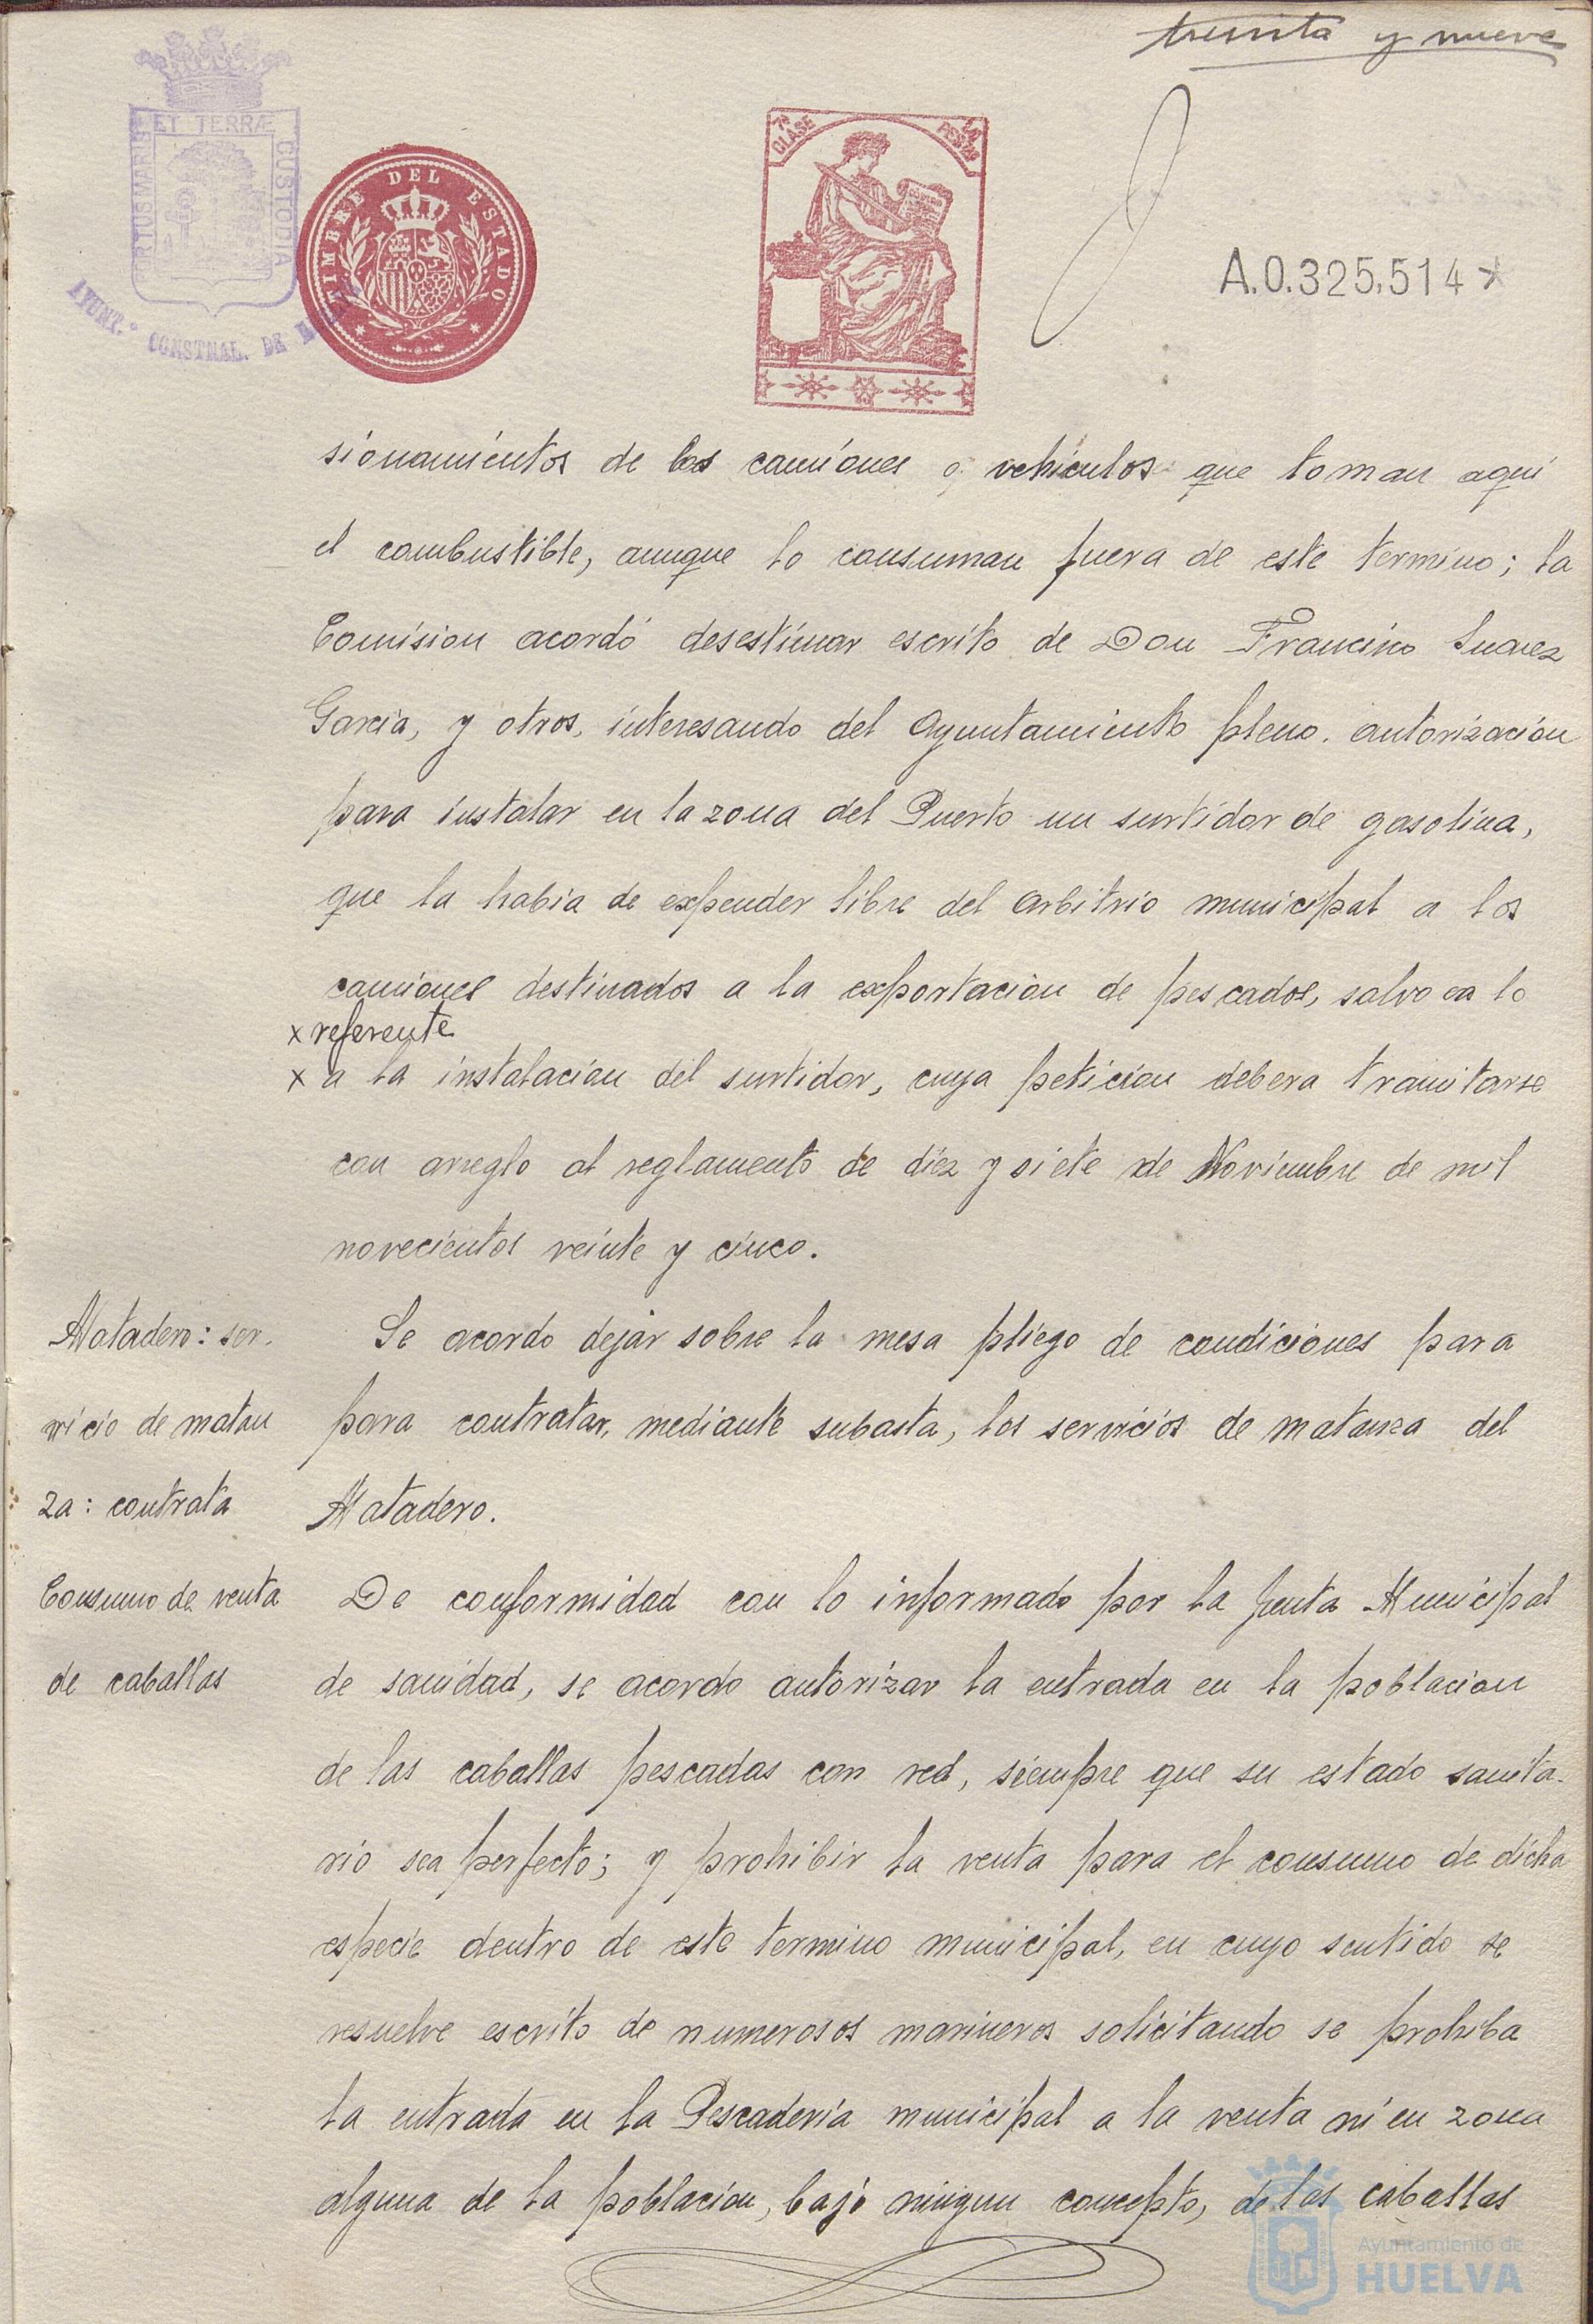 treinta y nueve
ET TERRÆ
CUSTODIA
PORTUS MARIS
AYUNT.º CONSTNAL. DE
TIMBRE DEL ESTADO
7ª CLASE
A.0.325,514*
sionamientos de los camiones o vehiculos que toman aqui
el combustible, aunque lo consuman fuera de este termino; la
Comision acordó desestimar escrito de Don Francisco Suarez
Garcia, y otros, interesando del Ayuntamiento pleno, autorizacion
para instalar en la zona del Puerto un surtidor de gasolina,
que la habia de expender libre del arbitrio municipal a los
camiones destinados a la exportacion de pescados, salvo en lo
x referente
x a la instalacion del surtidor, cuya peticion debera tramitarse
con arreglo al reglamento de diez y siete de Noviembre de mil
novecientos veinte y cinco.
Matadero: ser-
vicio de matan
za: contrata
Se acordo dejar sobre la mesa pliego de condiciones para
para contratar, mediante subasta, los servicios de matanza del
Matadero.
Consumo de venta
de caballas
De conformidad con lo informado por la Junta Municipal
de sanidad, se acordo autorizar la entrada en la poblacion
de las caballas pescadas con red, siempre que su estado sanita-
rio sea perfecto; y prohibir la venta para el consumo de dicha
especie dentro de este termino municipal, en cuyo sentido se
resuelve escrito de numerosos marineros solicitando se prohiba
la entrada en la Pescaderia municipal a la venta ni en zona
alguna de la poblacion, bajo ningun concepto, de las caballas
Ayuntamiento de
HUELVA